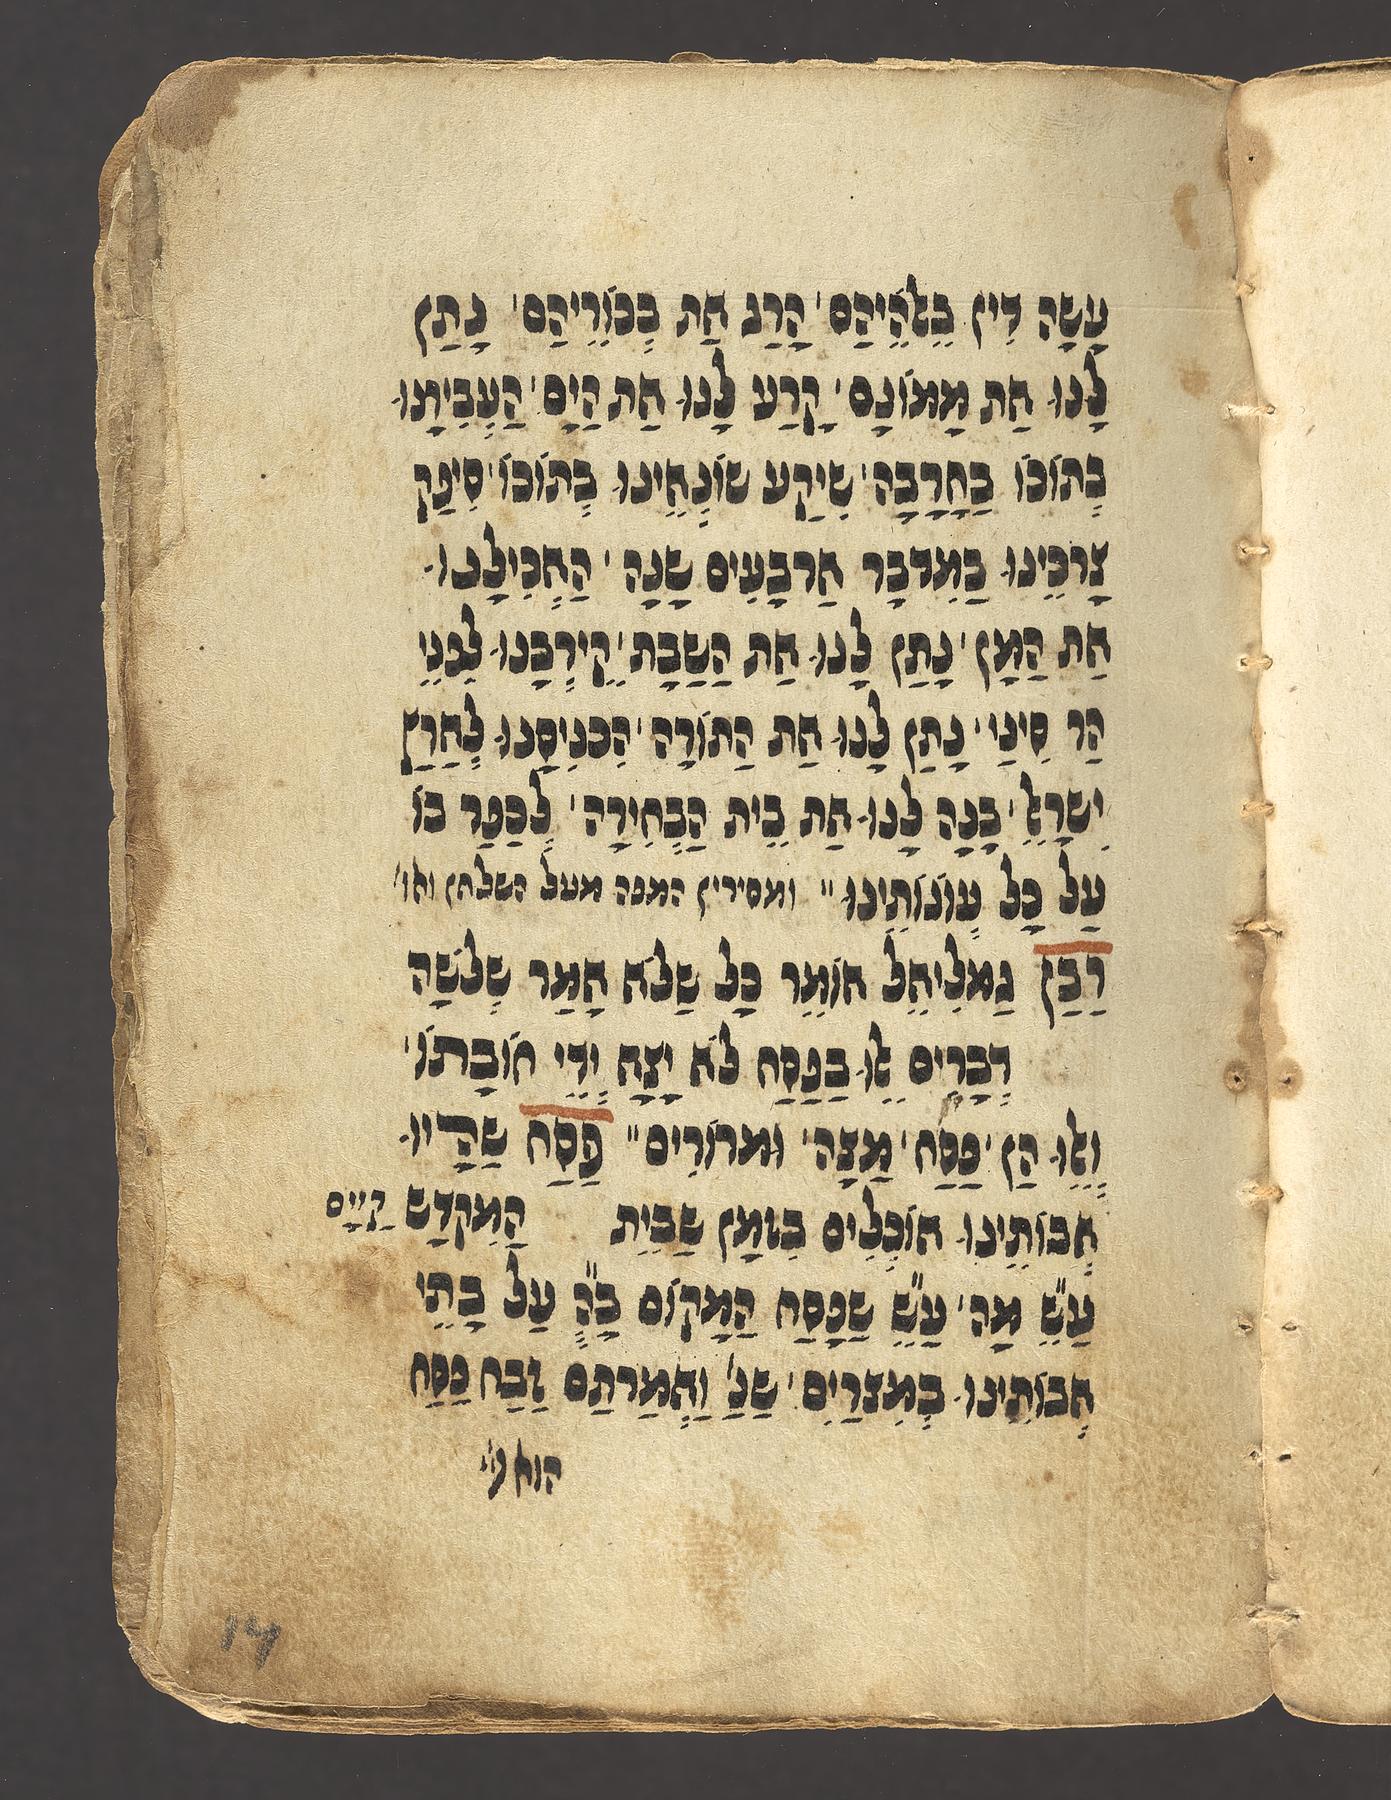 עָשָׂה דִין בֵאלֹהֵיהַם' הָרַג אַת בְכוֹרֵיהַם' נָתַן
לָנוּ אַת מָמוֹנָם' קָרַע לָנוּ אַת הַיָם' הַעְבִיתָנוּ
בְתוֹכוֹ בַחָרָבָה' שִיקַע שוֹנְאֵינוּ בְתוֹכוֹ' סִיפַק
צָרכֵינוּ בַמִדבָר אַרבָעִים שָנָה' הַאְכִילָנוּ
אַת הַמָן' נָתַן לָנוּ אַת הַשַבָת' קֵירְבָנוּ לִפנֵי
הַר סִינַי' נָתַן לָנוּ אַת הַתוֹרָה' הִכנִיסָנוּ לְאַרַץ
יִשרָאֵל' בָנָה לָנוּ אַת בֵית הַבְחִירָה' לְכַפַר בוֹ
עַל כָל עְוֹנוֹתֵינוּ" ומסירין המנה מעל השלחן ואו'
רַבַן גַמלִיאֵל אוֹמֵר כָל שַלֹא אָמַר שְלֹשָה
דְבָרִים אֵלוּ בַפַסַח לֹא יָצָא יְדֵי חוֹבָתוֹ'
וְאֵלוּ הַן' פַסַח' מַצָה' וּמרוֹרִים" פַסַח שַהָיוּ
אְבוֹתֵינוּ אוֹכְלִים בִזמָן שַבֵית הַמִקדָש קַיָים
עַ"ש מָה' עַ"ש שַפָסַח הַמָקוֹם בָ"ה עַל בָתֵי
אְבוֹתֵינוּ בְמִצרַיִם' שַנ' וַאְמַרתַם זַבַח פַסַח
הוא ליי'
14